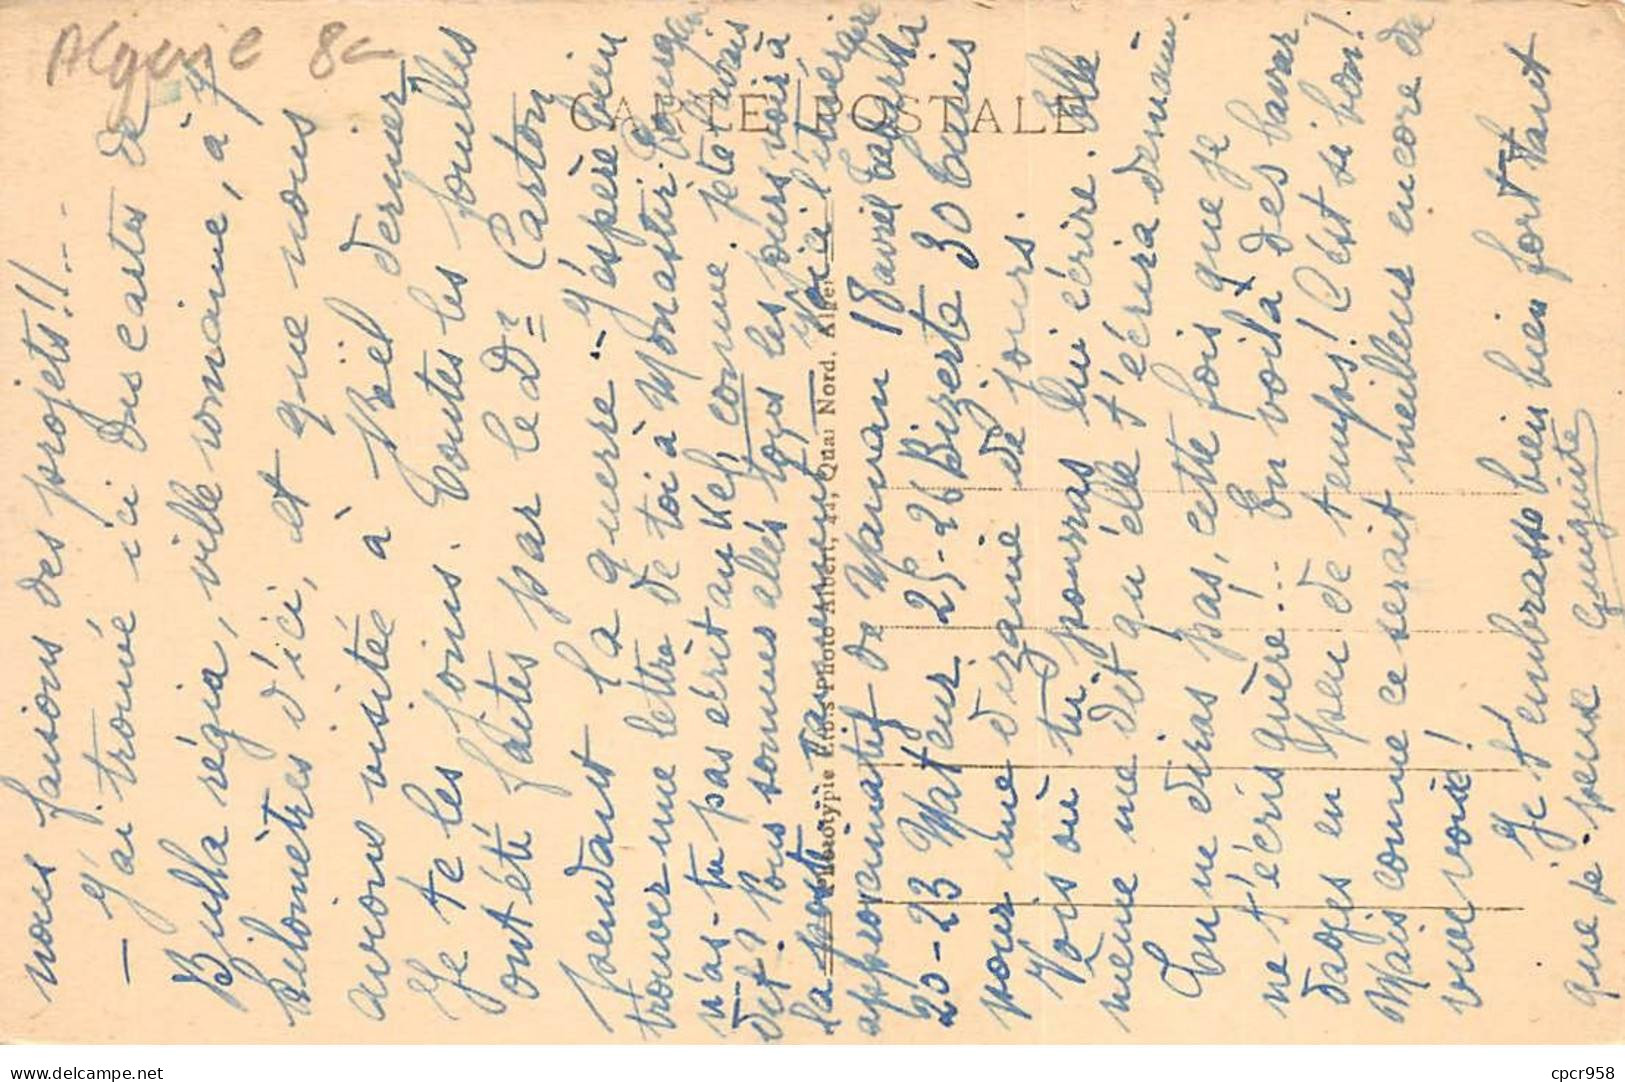 Algérie 8c
CARTE POSTALE
nous faisons des projets!! -
- J'ai trouvé ici des cartes de
Bulla régia, ville romaine, à 7
kilomètres d'ici, et que nous
avions visitée à Noël dernier
Je te les joins. Toutes les fouilles
ont été faites par le Dr Carton
pendant la guerre - J'espère bien
trouver une lettre de toi à Monastir.
n'as-tu pas écrit au Kef, comme je te l'avais
dit? Nous sommes allés tous les jours voir à
la poste. Voici l'itinéraire
approximatif de Maman 18 avril Tabarka
20-23 Mateur. 25-26 Bizerte 30 Tunis
pour une dizaine de jours.
Vois où tu pourras lui écrire. Elle
même me dit qu'elle t'écrira demain.
Tu ne diras pas, cette fois que je
ne t'écris guère!.. En voilà des bavar
dages en peu de temps! C'est si bon!
Mais comme ce serait meilleur encore de
vive voix!
Je t'embrasse bien bien fort tant
que je peux Guiguite
Phototypie Édrs Photo Albert, 41, Quai Nord, Alger
cpcr958